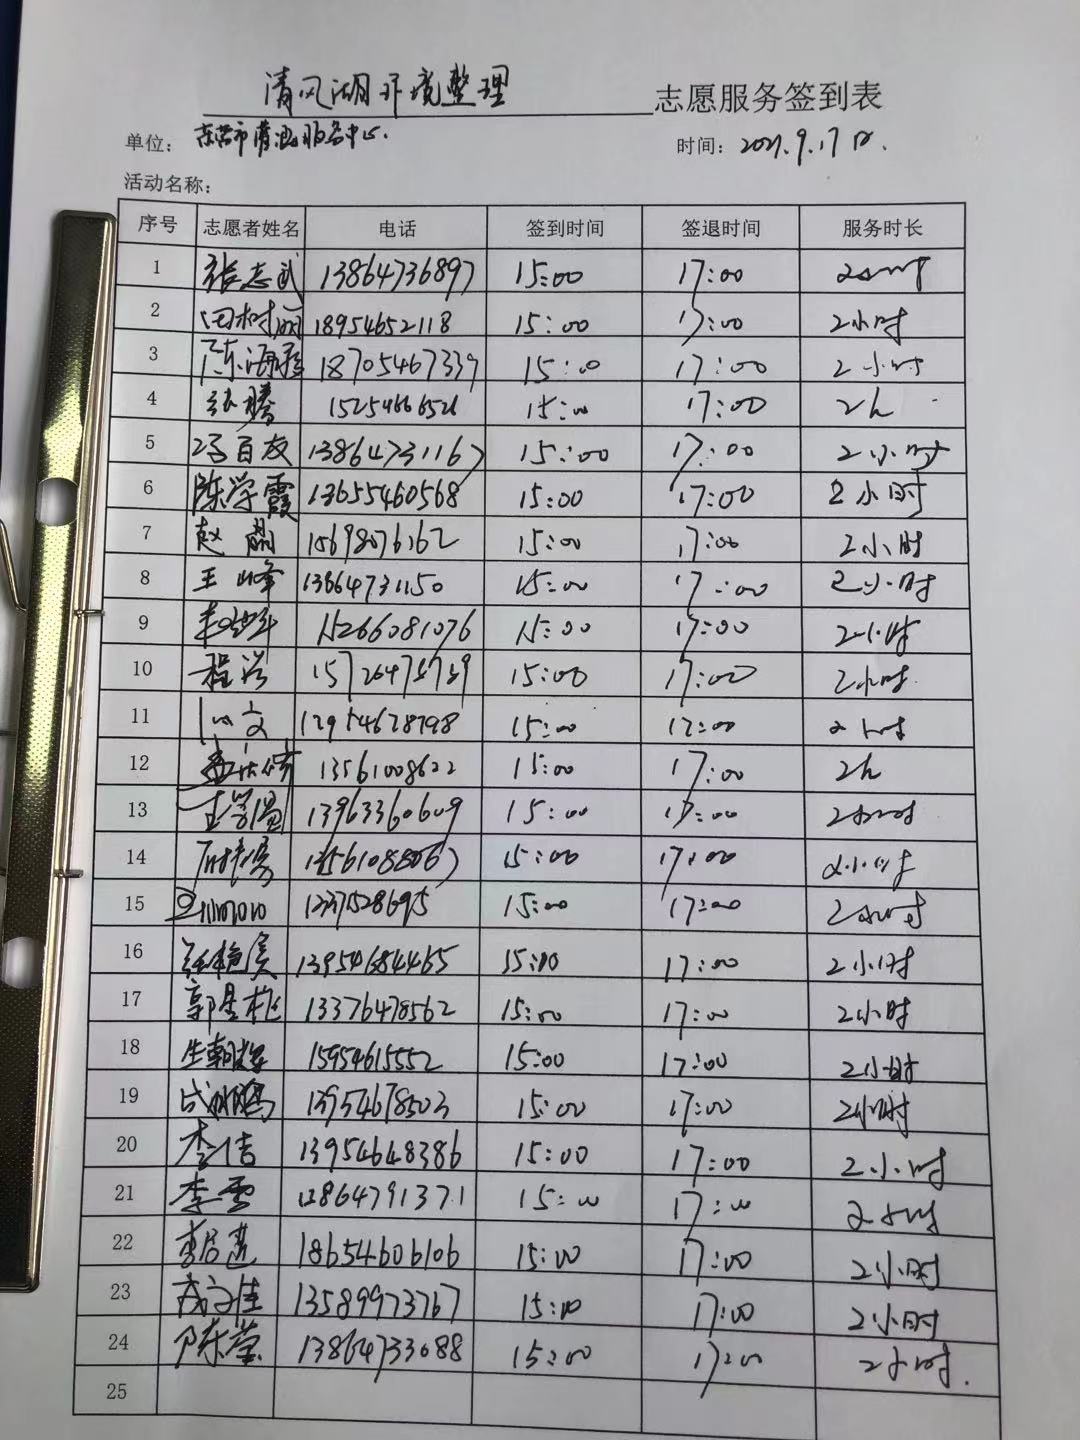 清风湖环境整理 志愿服务签到表
单位： 东营市 服务中心. 时间： 2021.9.17日.
活动名称：
序号 志愿者姓名 电话 签到时间 签退时间 服务时长
1 张志武 13864736897 15:00 17:00 2小时
2 田树丽 18954652118 15:00 17:00 2小时
3 陈海 18705467339 15:00 17:00 2小时
4 张腾 15:00 17:00 2h
5 冯百友 13864731167 15:00 17:00 2小时
6 陈学霞 13655460568 15:00 17:00 2小时
7 赵 15698076162 15:00 17:00 2小时
8 王峰 13864731150 15:00 17:00 2小时
9 15266081076 15:00 17:00 2小时
10 程浩 15:00 17:00 2小时
11 15:00 17:00 2小时
12 13561008622 15:00 17:00 2h
13 13963360609 15:00 17:00 2小时
14 15:00 17:00 2小时
15 15:00 17:00 2小时
16 13954684465 15:00 17:00 2小时
17 郭 13376478562 15:00 17:00 2小时
18 生朝辉 15954615552 15:00 17:00 2小时
19 13954678503 15:00 17:00 2小时
20 李倩 13954648386 15:00 17:00 2小时
21 李雪 15:00 17:00 2小时
22 18654606106 15:00 17:00 2小时
23 13589973767 15:00 17:00 2小时
24 陈莹 13864733088 15:00 17:00 2小时.
25